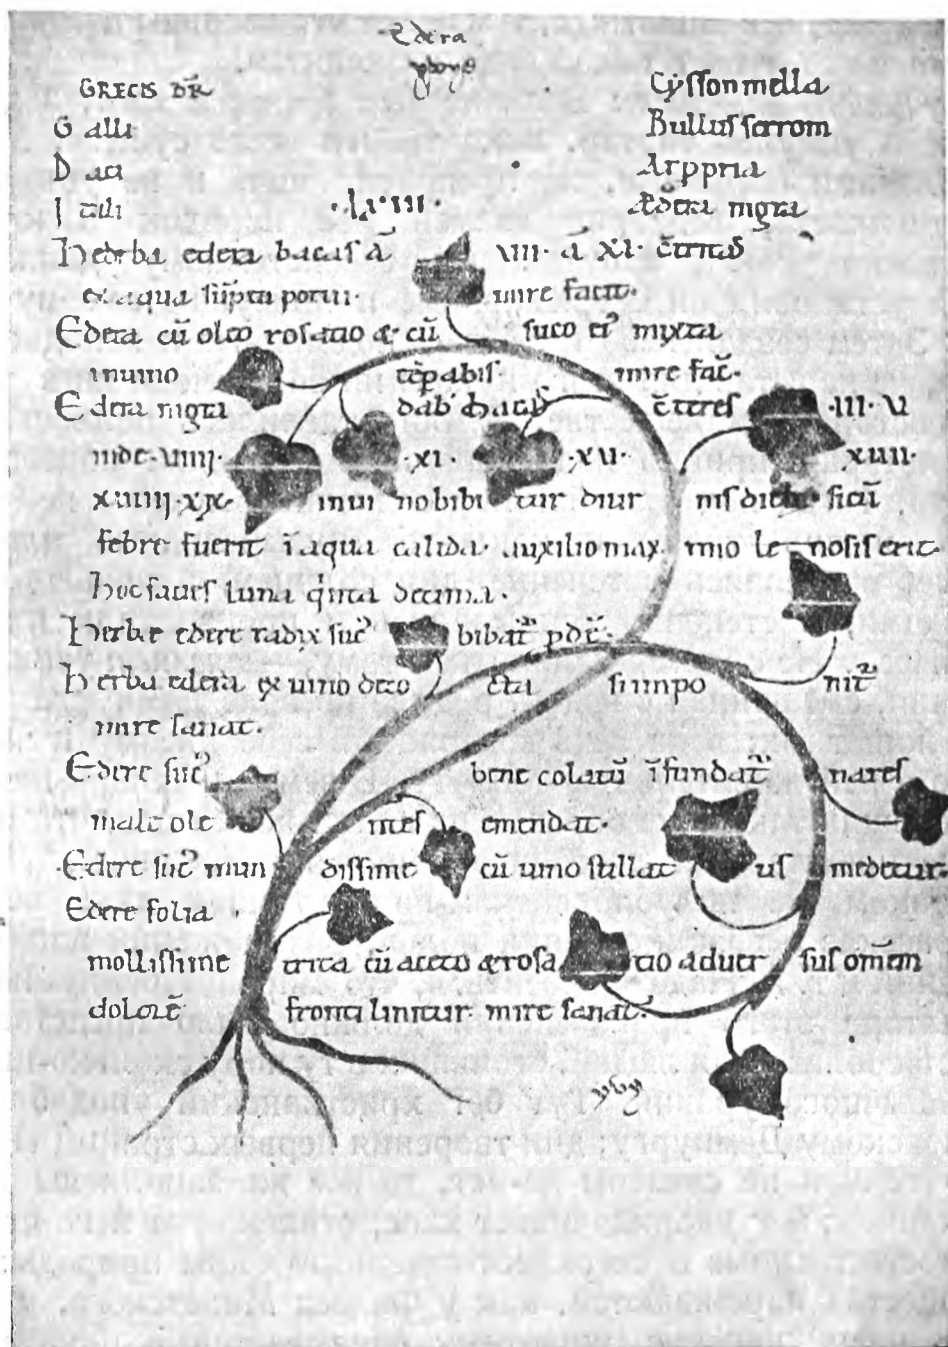 Edera
yvye
GRECIS DR̄ Cẏssonmella
Galli Bullusserrom
Daci Arppria
Itali ·lxiii· Ædera nigra
Hederba edera bacas ā viii· ā xi· c̄tritas
ex aqua sūpta potui· mire facit·
Edera cū oleo rosatio & cū suco ei᾽ mixta
inuino tēpabis mire fac̄·
Edera nigra c̄teres ·iii· v
inde ·viiii· ·xi· ·xv· xuii·
xuiiii·xix· inui no bibi tur diur nis
febre fuerit īaqua calida· auxilio max imo
hoc facies luna q̇nta decima·
Herbe edere radix suc᾽ bibat᾽
Herba edera ex uino deco cta si inpo nit᾽
mire sanat·
Edere suc᾽ bene colatū īfundat᾽ nares
male ole ntes emendat·
Edere suc᾽ mun dissime cū uino stillat us medetur·
Edere folia
mollissime trita cū aceto & rosa tio aduer sus om̄em
dolorē fronti linitur mire sanat·
yvy